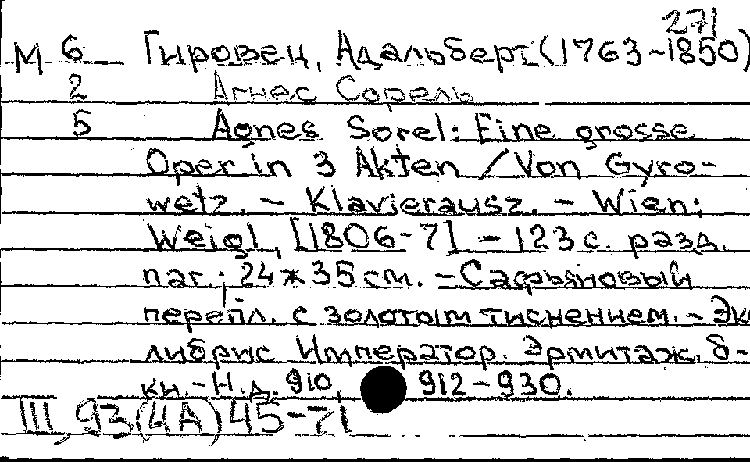 271
М 6 Гировец, Адальберт (1763-1850)
2 Агнес Сорель
5 Agnes Sorel: Eine grosse
Oper in 3 Akten / Von Gyro-
wetz. - Klavierausz. - Wien:
Weigl, [1806-7] - 123 с. разд.
паг.; 24 x 35 см. - Сафьяновый
перепл. с золотым тиснением. - Эк
либрис Император. Эрмитаж. б-
ки. - Н.д. 910, 912-930.
III, 93(4А)45-71